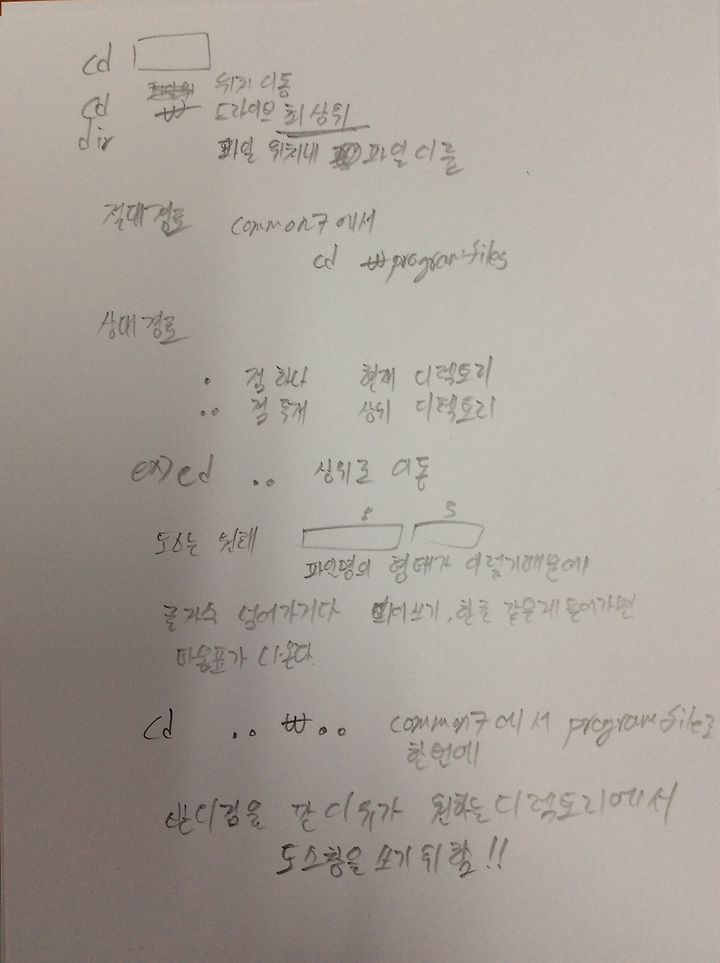 cd
위치 이동
cd ₩ 드라이브 최상위
dir 파일 위치내 파일 이름
절대경로 common7에서
cd ₩program files
상대경로
. 점 하나 현재 디렉토리
.. 점 두개 상위 디렉토리
ex) cd .. 상위로 이동
8 3
도스는 원래
파일명의 형태가 이렇기때문에
글자수 넘어가거나 띄어쓰기, 한글 같은게 들어가면
따옴표가 나온다.
cd .. ₩ .. common7에서 program file로
한번에
이유가 원하는 디렉토리에서
도스창을 쓰기 위함!!